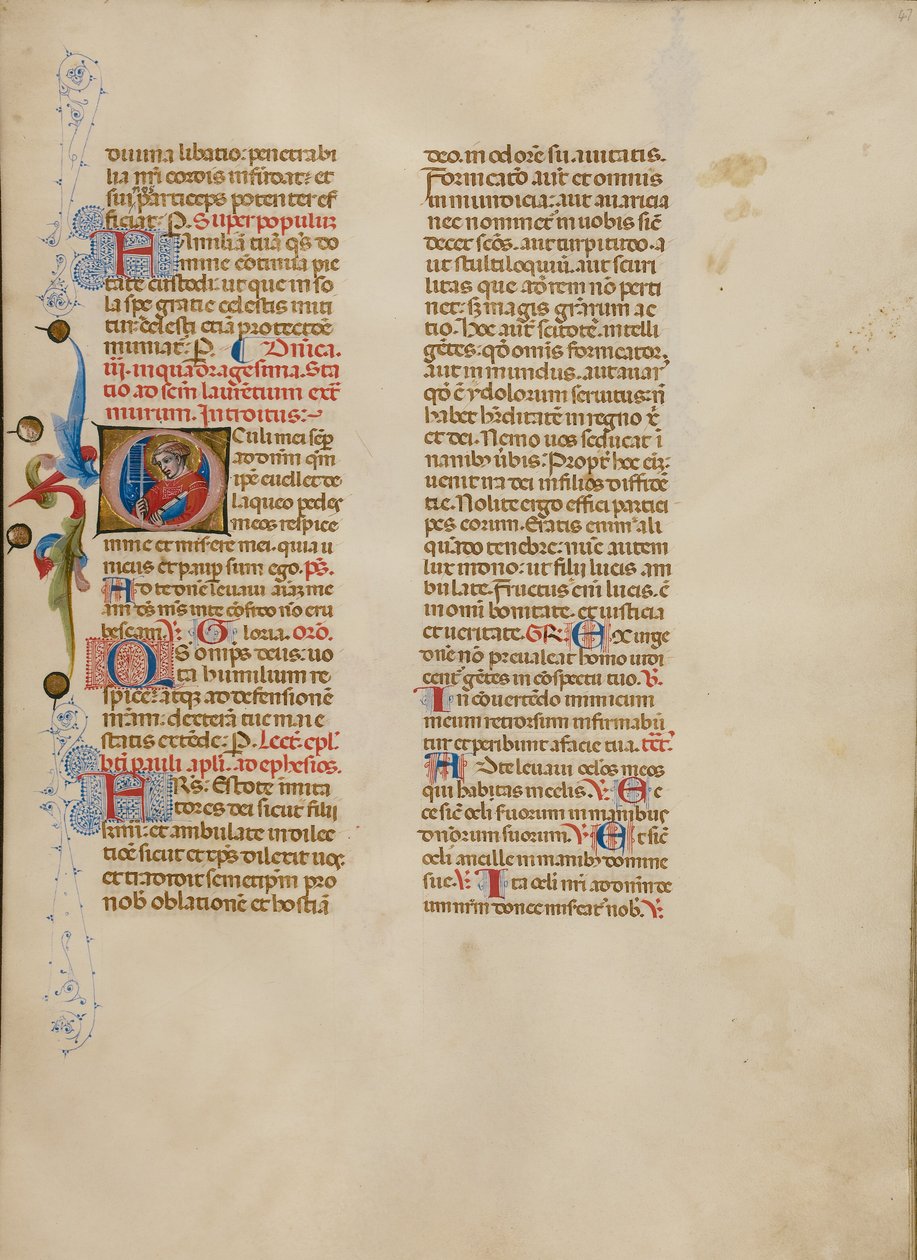 47
diuina libatio: penetrabi
lia nr̄i cordis infundat: et
sui nos participes potenter ef
ficiat: P. Super populuz
FAmiliā tuā qs̄ do
mine cōtinua pie
tate custodi: ut que in so
la spe gratie celestis inni
titur: celesti etiā protectōe
muniat̄: P. C Dn̄ica.
iii. in quadragesima. Sta
tio ad sc̄m laurētium ext̄
murum. Introitus:
OCuli mei sēp
ad dn̄m q̄m
ip̄e euellet de
laqueo pedes
meos respice
in me et miserere mei. quia u
nicus et paup̄ sum ego. ps̄.
Ad te dn̄e leuaui aīaz me
am ds̄ ms̄ in te cōfido nō eru
bescam. V. Gloria. Orō.
QS omp̄s deus: uo
ta humilium re
spice: atqz ad defensionē
nr̄am: dexterā tue maie
statis extēde: P. Lect̄. epl̄.
bt̄i pauli apl̄i. ad ephesios.
FRs̄: Estote imita
tores dei sicut filii
kr̄mi: et ambulate in dilec
tiōe sicut et xp̄s dilexit uos:
et tradidit semetip̄m pro
nob̄ oblationē et hostiā
deo. in odorē suauitatis.
Fornicatō aut̄ et omnis
inmundicia: aut auaricia
nec nominet̄ in uobis sic̄
decet sc̄os. aut turpitudo. a
ut stultiloquiū. aut scuri
litas que ad rem nō perti
net: sz magis gr̄arum ac
tio. Hoc aut̄ scitote. intelli
gētes: qđ omīs fornicator,
aut inmundus. aut auar᾽
qđ ē ydolorum seruitus: nō
habet hr̄ditatē in regno xp̄i
et dei. Nemo uos seducat ī
nanibȝ ūbis: Propt̄ hoc eīz
uenit ira dei in filios diffidē
tie. Nolite ergo effici partici
pes eorum. Eratis enim ali
quādo tenebre: nūc autem
lux in dno: ut filii lucis am
bulate. Fructus eni lucis. ē
in omī bonitate. et iusticia
et ueritate. GR. EXurge
dn̄e nō preualeat homo iudi
cent̄ gētes in cōspectu tuo. V.
In cōuertēdo inimicum
meum retrorsum infirmabū
tur et peribunt a facie tua. tct̄.
Ad te leuaui oc̄los meos
qui habitas in celis. V. Ec
ce sic̄ oc̄li seruorum in manibus
dn̄orum suorum. V. Et sic̄
oc̄li ancille in manibȝ domine
sue. V. Ita oc̄li nr̄i ad dn̄m de
um nr̄m donec mis̄eat̄ nob̄. V.